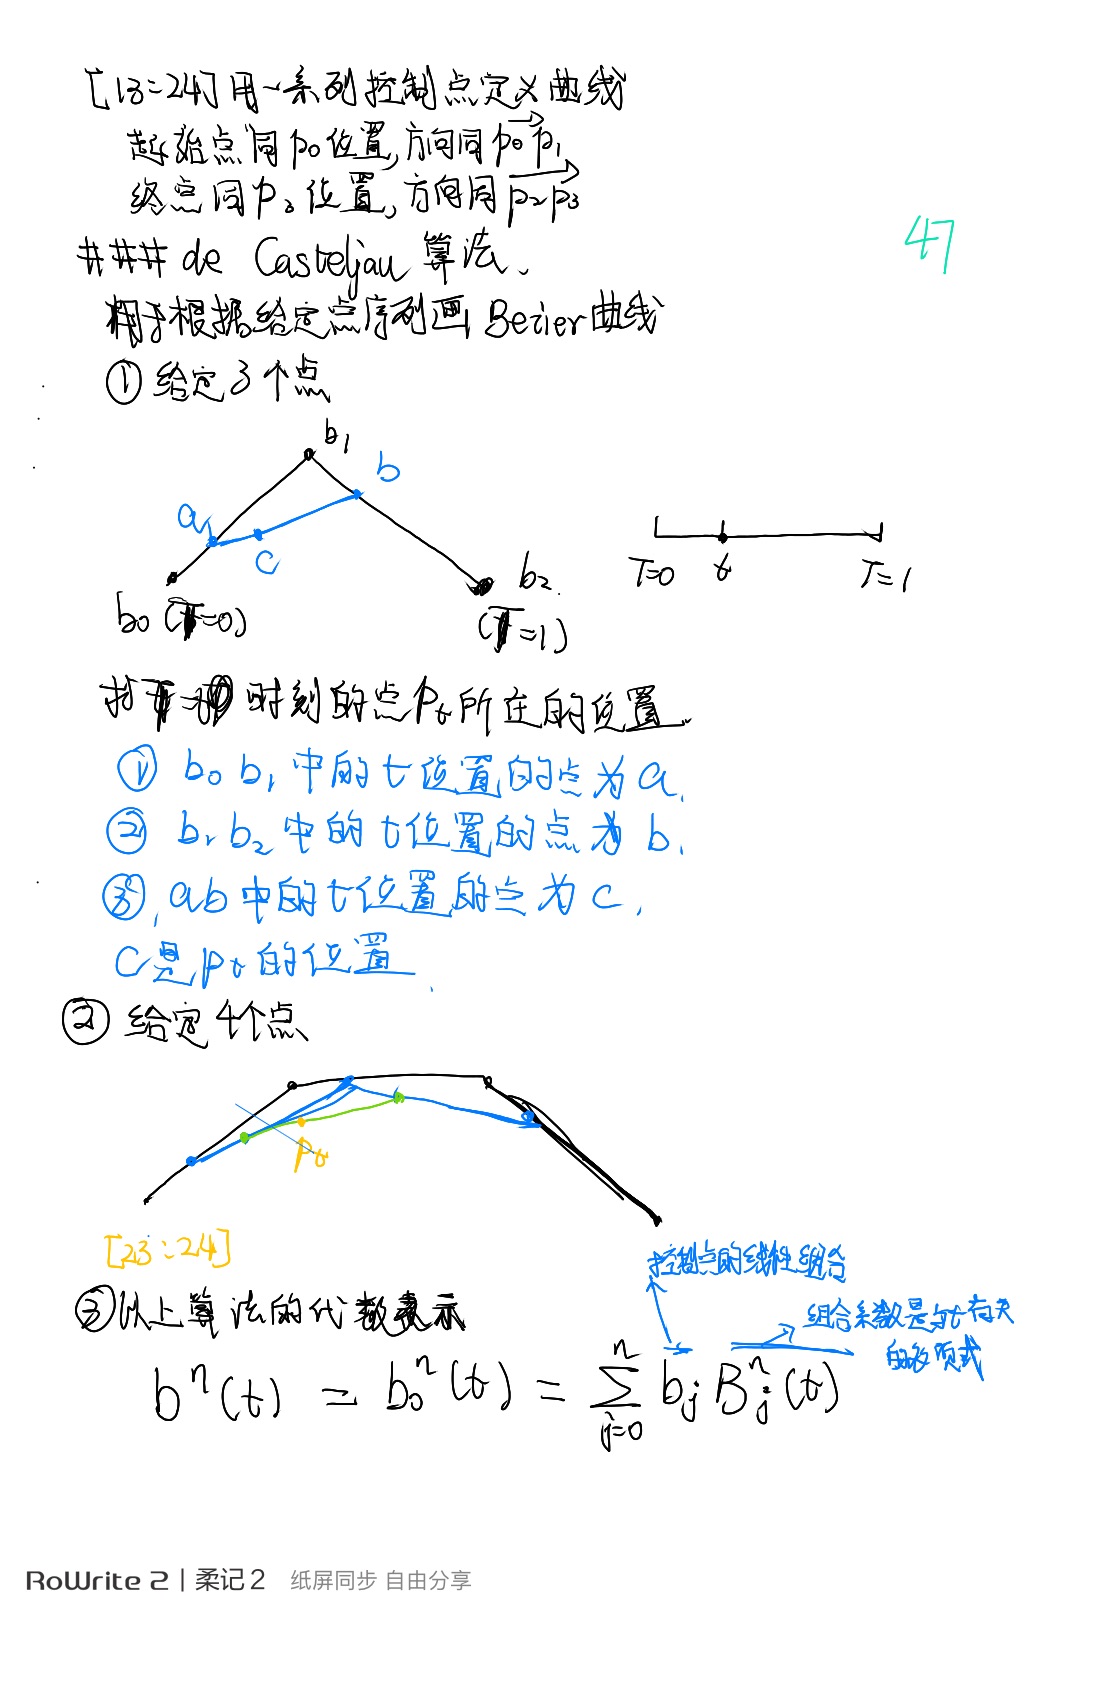 [13:24]用一系列控制点定义曲线
起始点同p₀位置,方向同p₀p₁
终点同p₃位置,方向同p₂p₃
47
### de Casteljau 算法、
用于根据给定点序列画 Bezier曲线
① 给定3个点
b₁
b
a
c
b₀ (T=0)
b₂
(T=1)
T=0 t T=1
时刻的点Pt所在的位置
① b₀ b₁ 中的t位置的点为a.
② b₁ b₂ 中的t位置的点为b.
③ ab中的t位置的点为c.
C是pt的位置
② 给定4个点
Pt
[23:24]
控制点的线性组合
③以上算法的代数表示
组合系数是与t有关
的多项式
bⁿ(t) = b₀ⁿ(t) = ∑ⁿⱼ₌₀ bⱼ Bⱼⁿ(t)
RoWrite 2 | 柔记2 纸屏同步 自由分享